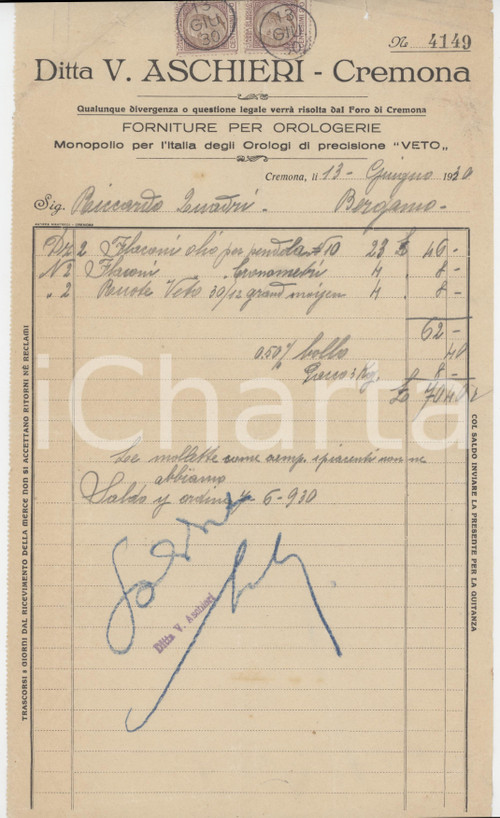 13
GIU
30
13
GIU
30
N. 4149
Ditta V. ASCHIERI - Cremona
Qualunque divergenza o questione legale verrà risolta dal Foro di Cremona
FORNITURE PER OROLOGERIE
Monopolio per l'Italia degli Orologi di precisione "VETO„
Cremona, li 13 - Giugno - 1930
Sig. Riccardo Quadri -
Bergamo -
Dz 2 Flaconi olio per pendola N 10 23 £ 46 -
N 2 Flaconi " Cronometri 4 . 8 -
" 2 Ruote Veto 30/12 grand moyen 4 . 8 -
62 -
0.50% bollo 40
Pacco 3 Kg. 8 -
£ 70 40
iCharta
Le molatte come camp. spiacenti non ne
abbiamo
Saldo y ordine 4 6-930
Saldato
Ditta V. Aschieri
TRASCORSI 8 GIORNI DAL RICEVIMENTO DELLA MERCE NON SI ACCETTANO RITORNI NÈ RECLAMI
COL SALDO INVIARE LA PRESENTE PER LA QUITANZA